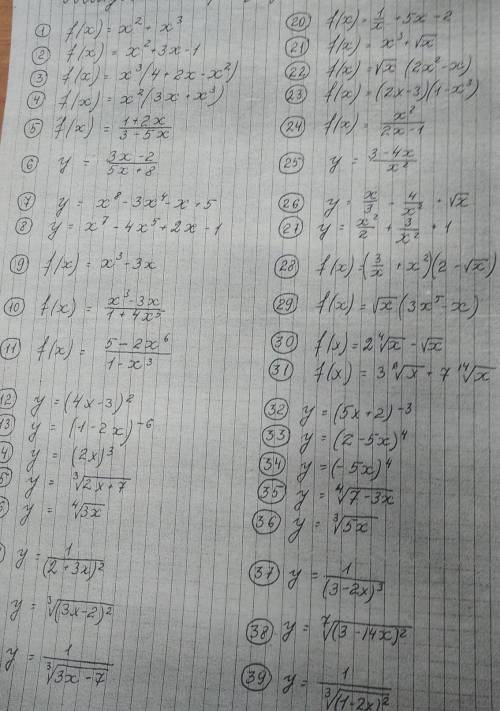 ① f(x) = x² + x³
② f(x) = x² + 3x - 1
③ f(x) = x³(4 + 2x - x²)
④ f(x) = x²(3x + x³)
⑤ f(x) = (1 + 2x)/(3 - 5x)
⑥ y = (3x - 2)/(5x + 8)
⑦ y = x⁸ - 3x⁴ - x + 5
⑧ y = x⁷ - 4x⁵ + 2x - 1
⑨ f(x) = x³ - 3x
⑩ f(x) = (x³ - 3x)/(1 + 4x⁵)
⑪ f(x) = (5 - 2x⁶)/(1 - x³)
12 y = (4x - 3)²
13 y = (1 - 2x)⁻⁶
4 y = (2x)³
5 y = ∛(2x + 7)
6 y = ∜(3x)
y = 1/(2 + 3x)²
y = ∛((3x - 2)²)
y = 1/∛(3x - 7)
⑳ f(x) = 1/x + 5x - 2
㉑ f(x) = x³ + √x
㉒ f(x) = √x (2x² - x)
㉓ f(x) = (2x - 3)(1 - x³)
㉔ f(x) = x²/(2x - 1)
㉕ y = (3 - 4x)/x²
㉖ y = x/3 - 4/x² + √x
㉗ y = x²/2 + 3/x² + 1
㉘ f(x) = (3/x + x²)(2 - √x)
㉙ f(x) = √x (3x⁵ - x)
㉚ f(x) = 2∜x - √x
㉛ f(x) = 3 √x + 7 ¹⁴√x
㉜ y = (5x + 2)⁻³
㉝ y = (2 - 5x)⁴
㉞ y = (-5x)⁴
㉟ y = ∜(7 - 3x)
㊱ y = ∛(5x)
㊲ y = 1/(3 - 2x)³
㊳ y = ⁷√((3 - 14x)²)
㊴ y = 1/∛((1 - 2x)²)